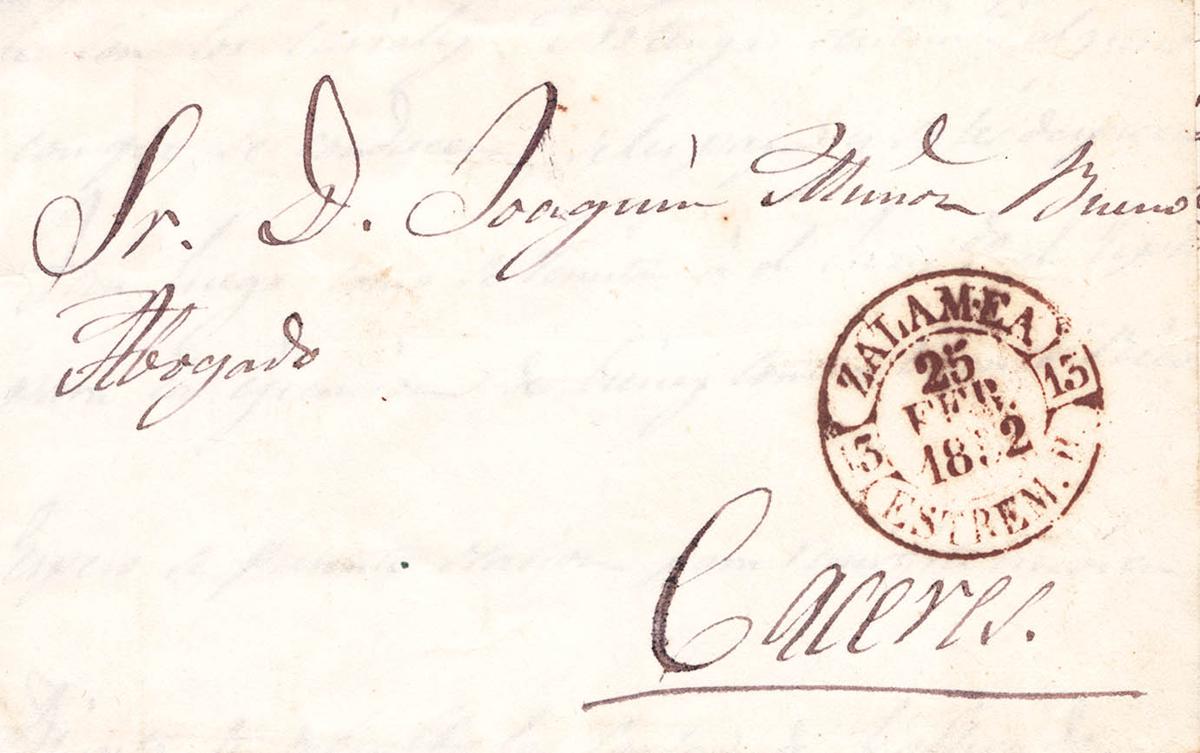 Sr. D. Joaquin Muñoz Bueno
Abogado
ZALAMEA
15
25
FEB.
1852
3
ESTREM.
Caceres.